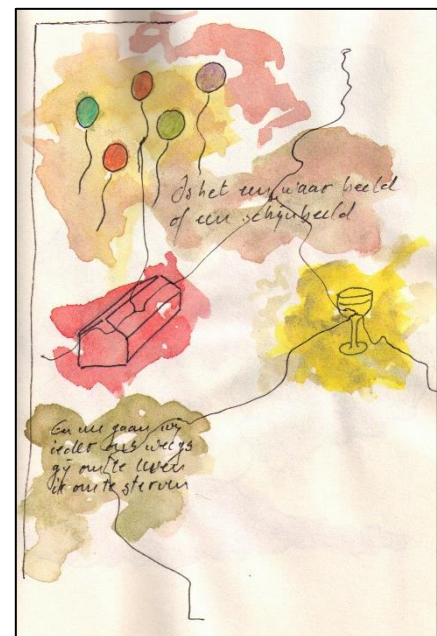 Is het een waar beeld
of een schijnbeeld
En nu gaan wij
ieder ons weegs
gij om te leven
ik om te sterven